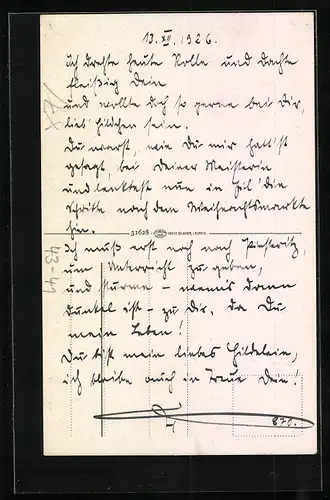 13. XII. 1926.
Ich drehte heute Rolle und dachte
fleißig Dein
und wollte doch so gerne bei Dir,
lieb' Hildchen sein.
Du warst, wie Du mir hatt'st
gesagt, bei Deiner Meisterin
und lenktest nun in Eil' die
Schritte nach dem Weihnachtsmarkte
hin.
31628
Ich muß erst noch nach Piesteritz,
um Unterricht zu geben,
und stürme – wenns dann
dunkel ist – zu Dir, da Du
mein Leben!
Du bist mein liebes Hildelein,
ich bleibe auch in Treue Dein!
870.
43-41